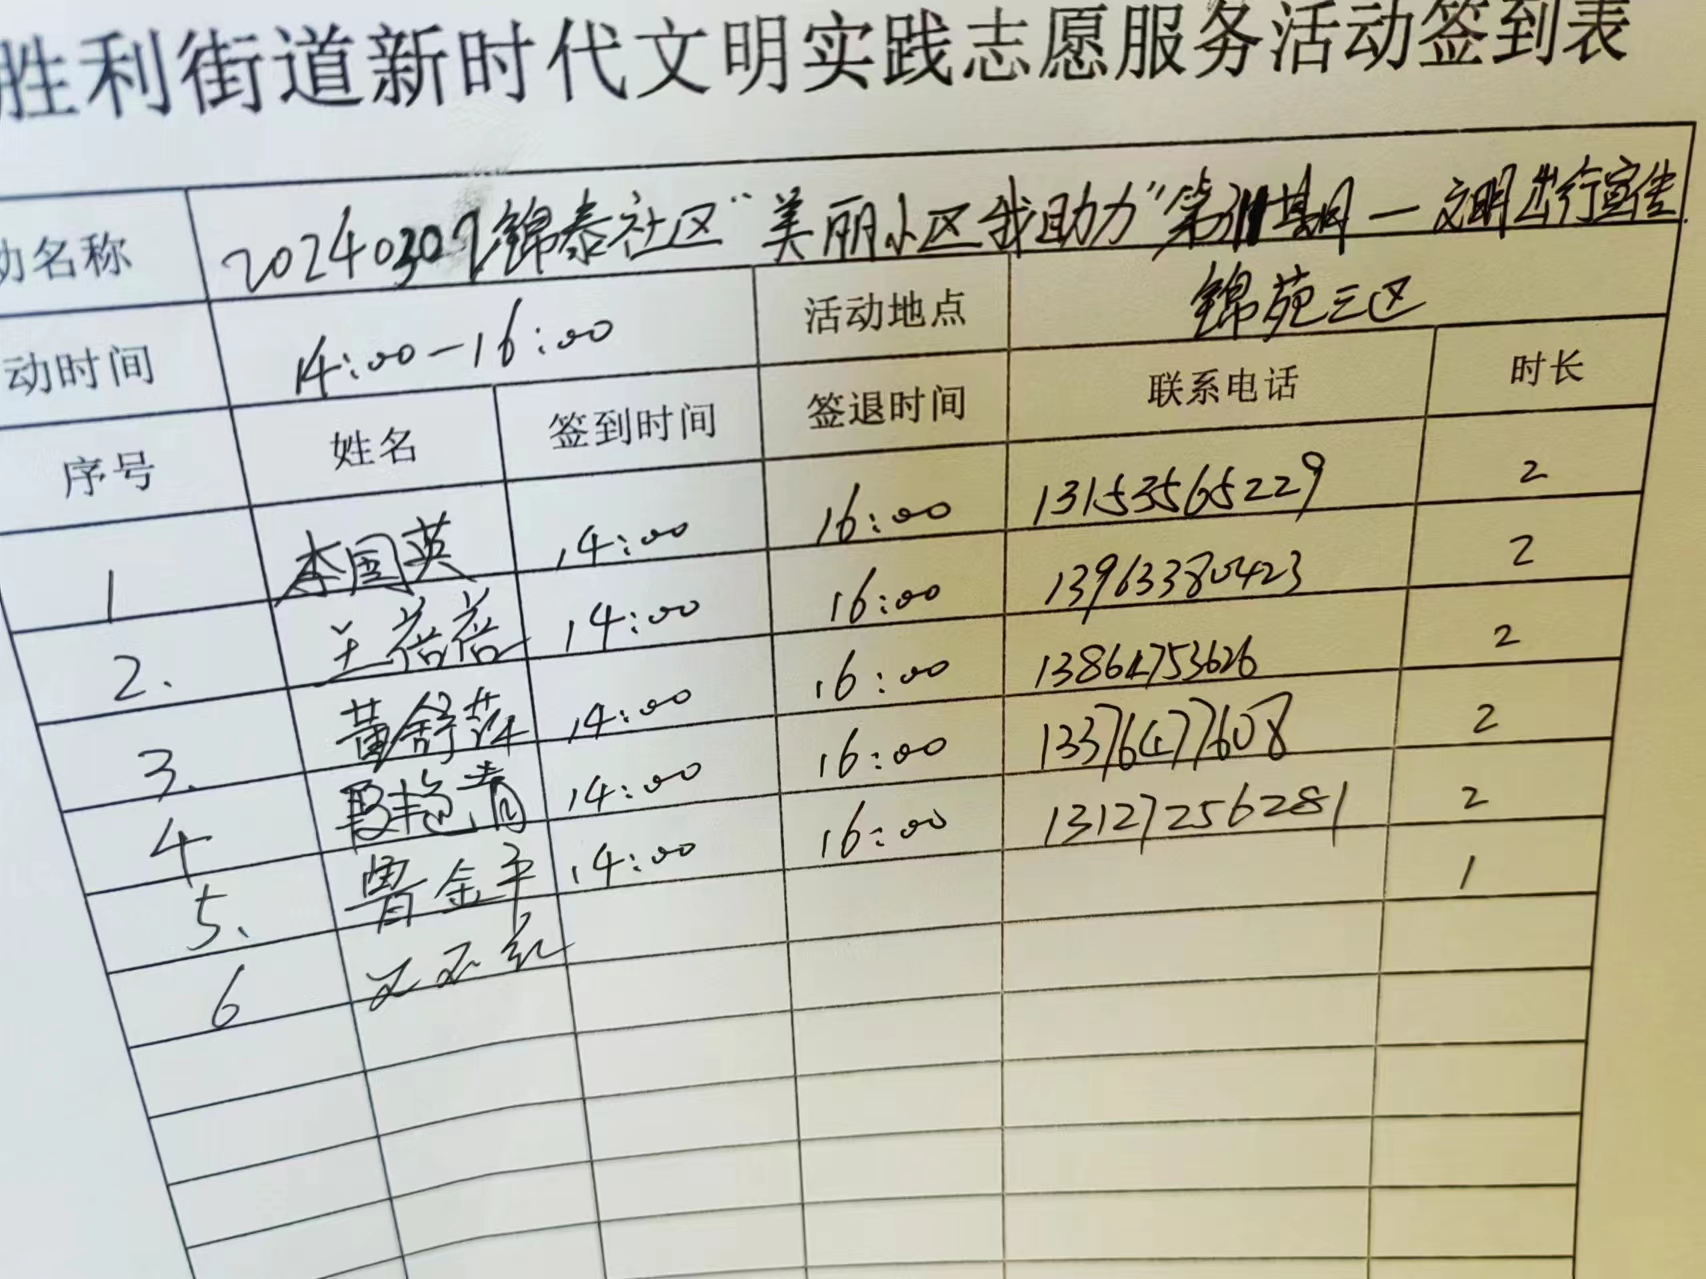 胜利街道新时代文明实践志愿服务活动签到表
动名称 20240309锦泰社区“美丽小区我助力”第 期—文明出行宣传
动时间 14:00-16:00 活动地点 锦苑三区
序号 姓名 签到时间 签退时间 联系电话 时长
1 李国英 14:00 16:00 13153565229 2
2. 王蓓蓓 14:00 16:00 13963380423 2
3. 黄舒萍 14:00 16:00 13864753626 2
4 段艳青 14:00 16:00 13376477608 2
5. 曹金平 14:00 16:00 13127256281 2
6 1